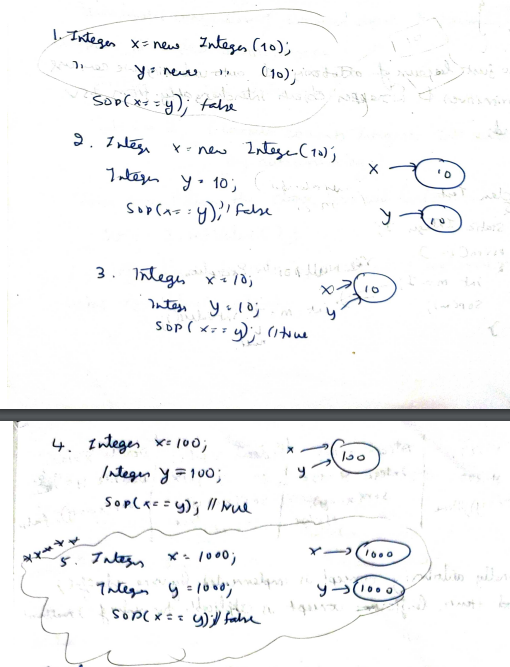 1. Integer x = new Integer(10);
" y = new " (10);
SOP(x==y); false
2. Integer x = new Integer(10);
Integer y = 10;
SOP(x==y); // False
x → 10
y → 10
3. Integer x = 10;
Integer y = 10;
SOP(x==y); // True
x → 10
y
4. Integer x = 100;
Integer y = 100;
SOP(x==y); // True
x → 100
y
***** 5. Integer x = 1000;
Integer y = 1000;
SOP(x==y); // false
x → 1000
y → 1000